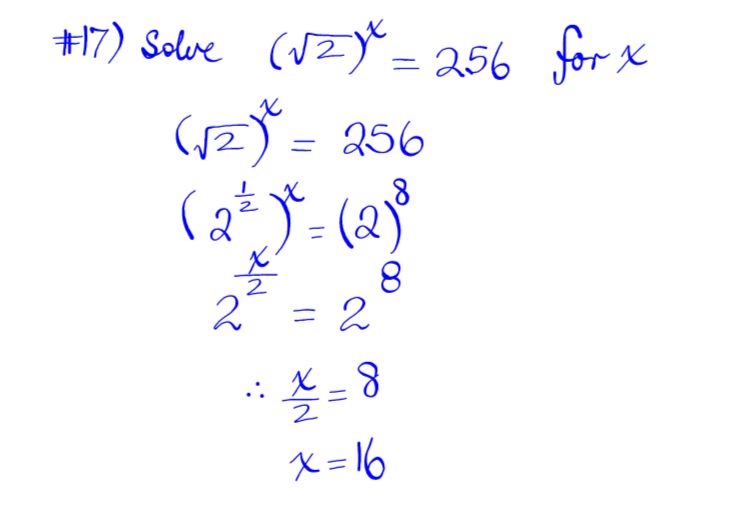 #17) Solve (√2)ˣ = 256 for x
(√2)ˣ = 256
(2^(1/2))ˣ = (2)⁸
2^(x/2) = 2⁸
∴ x/2 = 8
x = 16